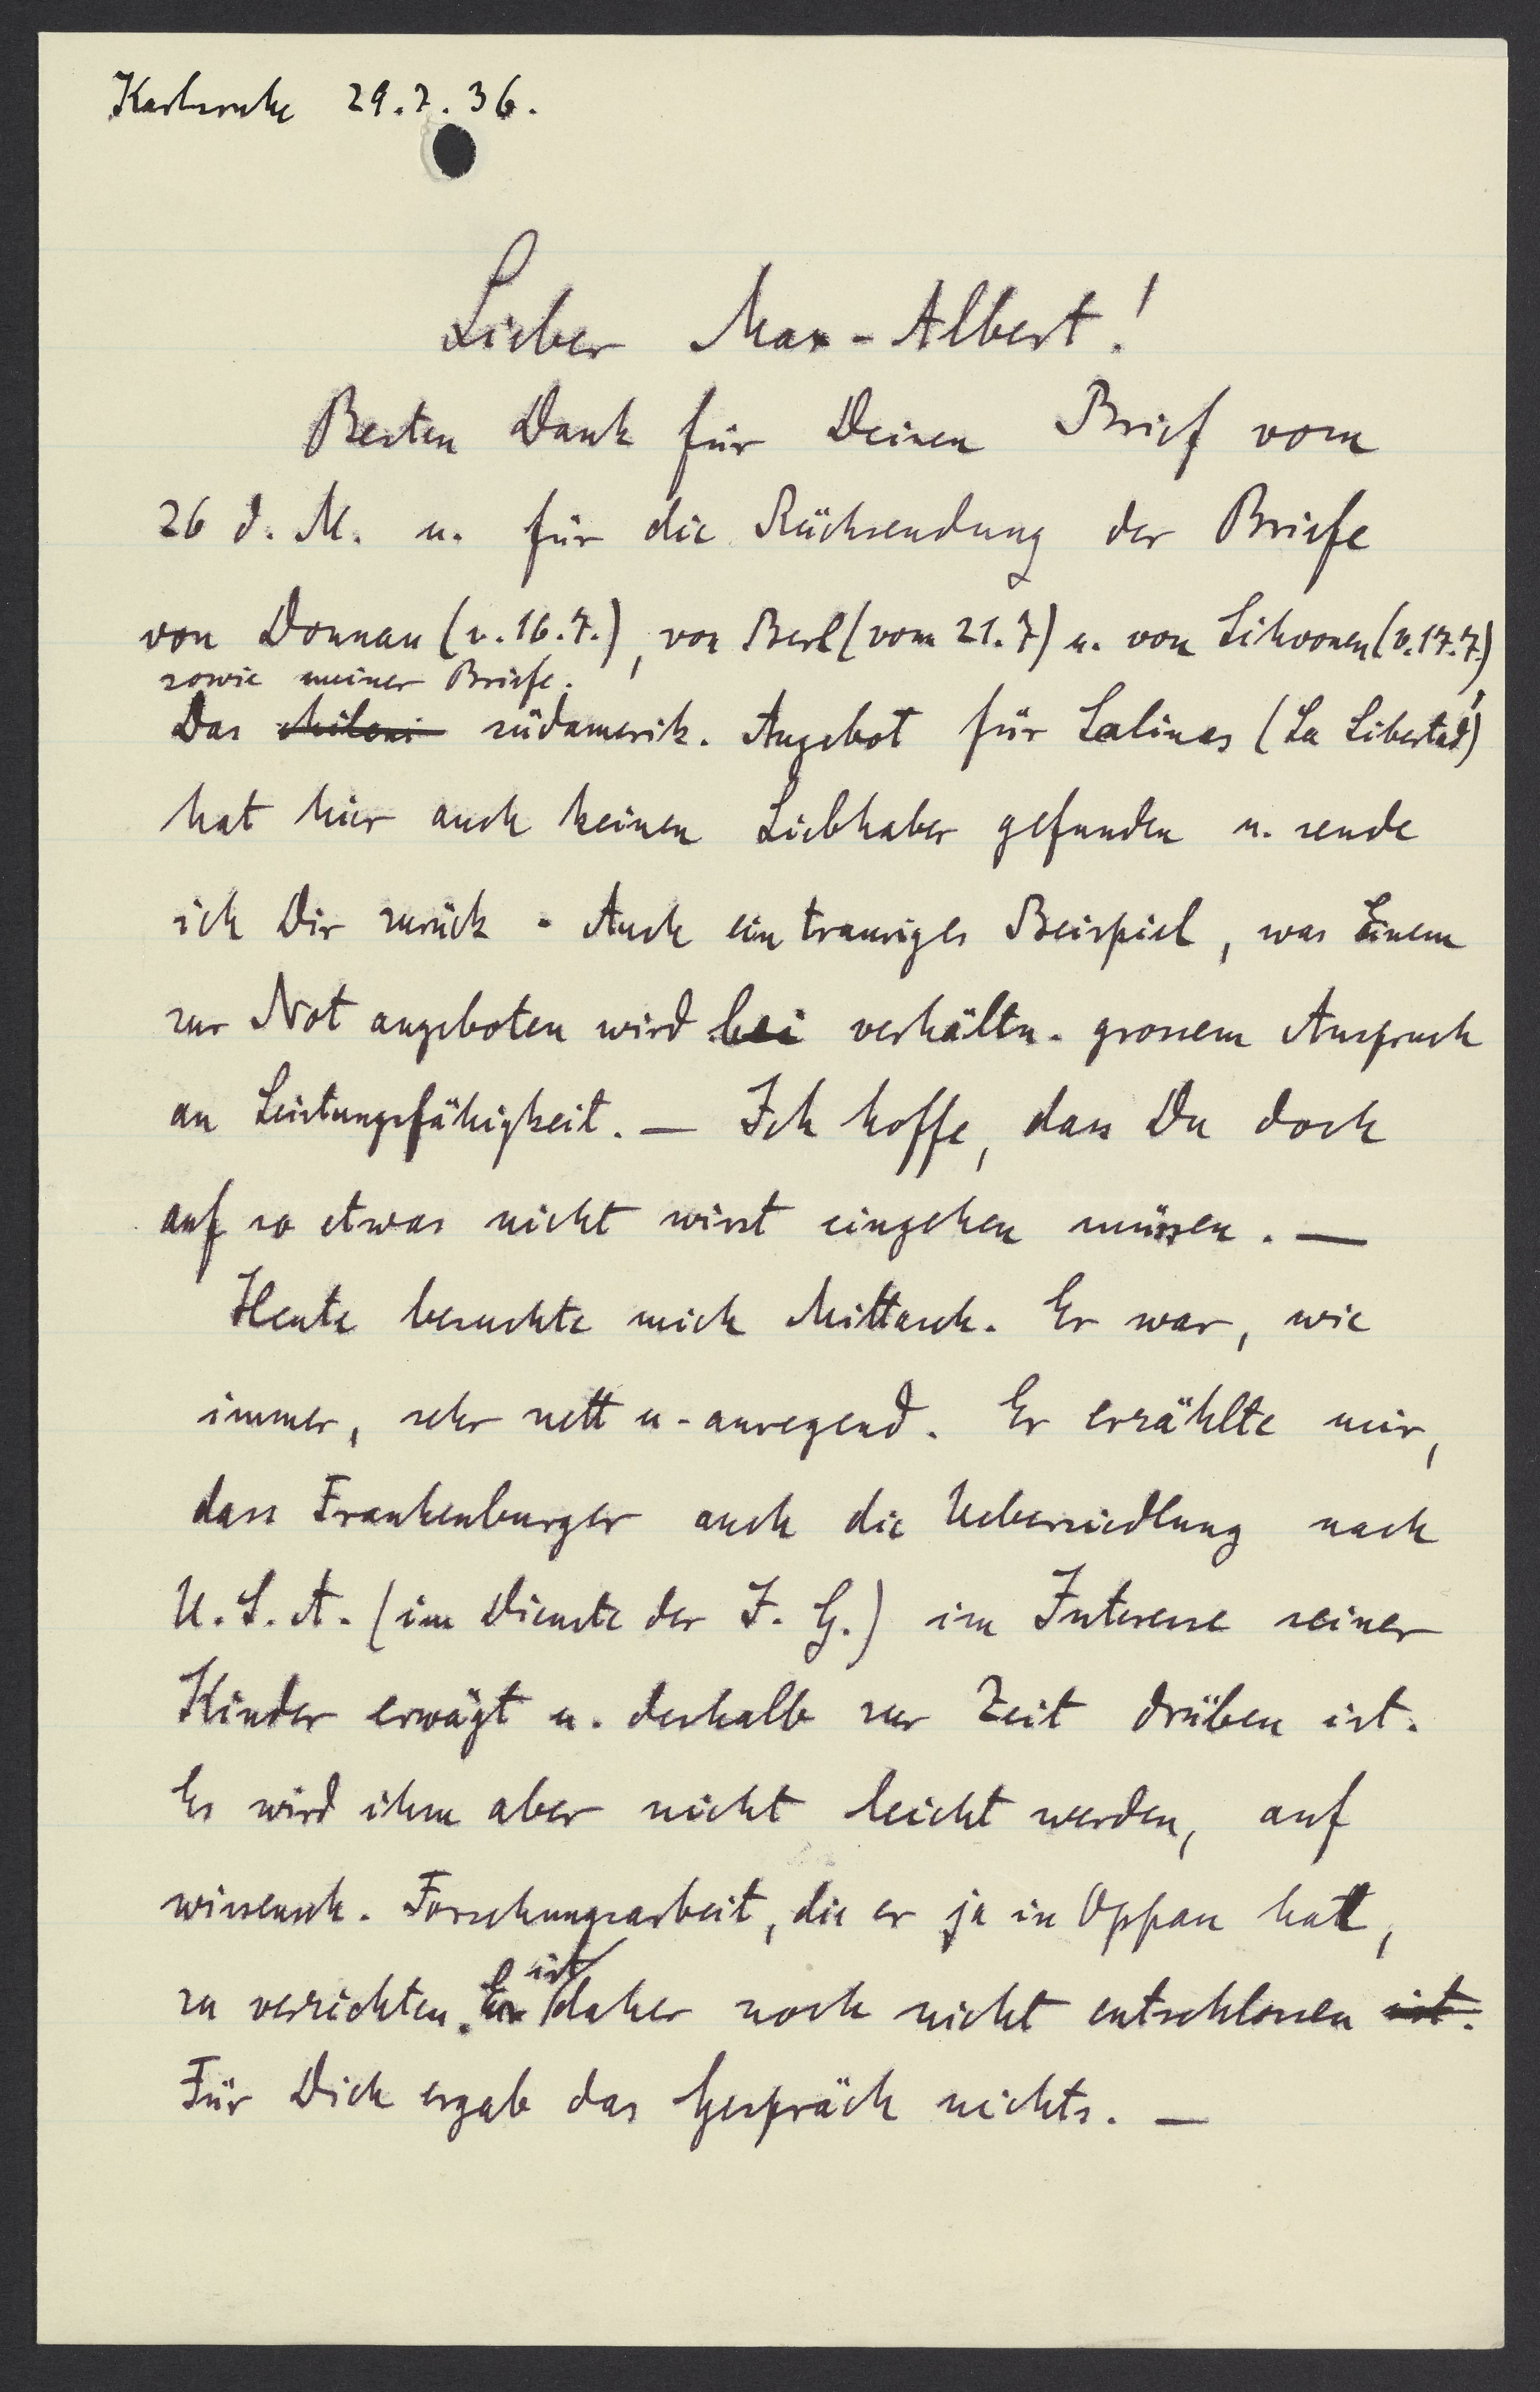 Karlsruhe 29.7.36.
Lieber Max-Albert!
Besten Dank für Deinen Brief vom
26 d. M. u. für die Rücksendung der Briefe
von Donnan (v. 16.7.), von Berl (vom 21.7) u. von Sihvonen (v. 17.7.)
sowie meiner Briefe.
Das südamerik. Angebot für Salinas (La Libertad!)
hat hier auch keinen Liebhaber gefunden u. sende
ich Dir zurück. Auch ein trauriges Beispiel, was Einem
zur Not angeboten wird bei verhältn. grossem Anspruch
an Leistungsfähigkeit. — Ich hoffe, dass Du doch
auf so etwas nicht wirst eingehen müssen. —
Heute besuchte mich Mittasch. Er war, wie
immer, sehr nett u. anregend. Er erzählte mir,
dass Frankenburger auch die Uebersiedlung nach
U.S.A. (im Dienste der I. G.) im Interesse seiner
Kinder erwägt u. deshalb zur Zeit drüben ist.
Es wird ihm aber nicht leicht werden, auf
wissensch. Forschungsarbeit, die er ja in Oppau hat,
zu verzichten. Er ist daher noch nicht entschlossen ist.
Für Dich ergab das Gespräch nichts. —